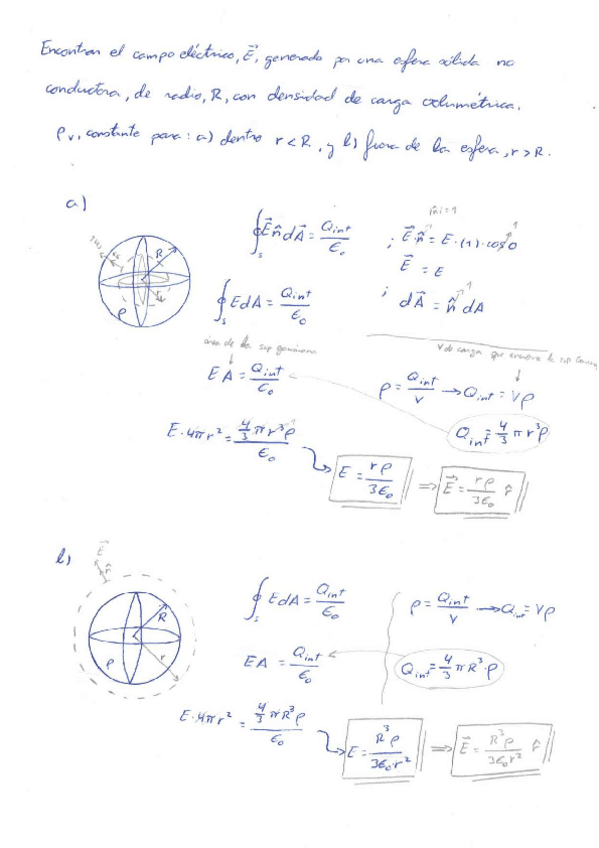 Encontrar el campo eléctrico, E⃗, generado por una esfera sólida no
conductora, de radio, R, con densidad de carga volumétrica,
ρv, constante para: a) dentro r<R, y b) fuera de la esfera, r>R.
a)
R
r
ρ
∮s E⃗ n̂ dA⃗ = Qint/ε0
|n̂|=1
; E⃗·n̂ = E·(1)·cos0
1
E⃗ = E
; dA⃗ = n̂ dA
∮s E dA = Qint/ε0
área de la sup gaussiana
E A = Qint/ε0
V de carga que encierra la sup
ρ = Qint/V → Qint = Vρ
Qint = 4/3 π r³ρ
E·4πr² = 4/3 π r³ρ / ε0
E = rρ/3ε0 ⇒ E⃗ = rρ/3ε0 r̂
b)
E⃗
n̂
R
r
ρ
∮s E dA = Qint/ε0
ρ = Qint/V → Qint = Vρ
EA = Qint/ε0
Qint = 4/3 π R³·ρ
E·4πr² = 4/3 π R³ρ / ε0
E = R³ρ/3ε0r² ⇒ E⃗ = R³ρ/3ε0r² r̂